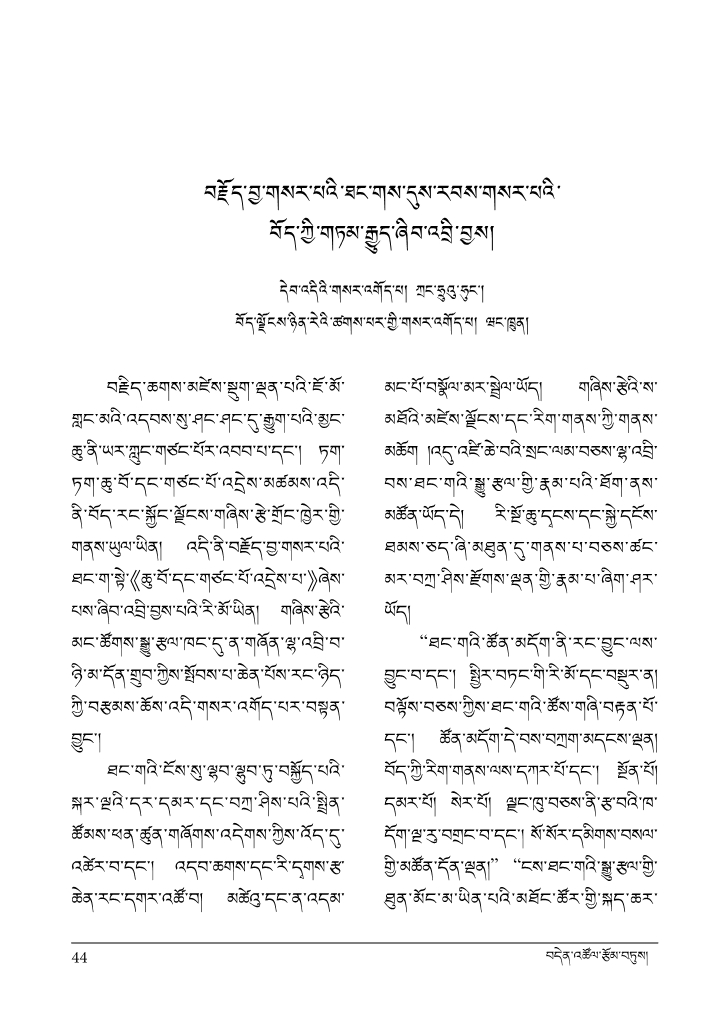 བརྗོད་བྱ་གསར་པའི་ཐང་གས་དུས་རབས་གསར་པའི་
བོད་ཀྱི་གཏམ་རྒྱུད་ཞིབ་འབྲི་བྱས།
དེབ་འདིའི་གསར་འགོད་པ། ཀྲང་ཧྲུའུ་ཧུང་།
བོད་ལྗོངས་ཉིན་རེའི་ཚགས་པར་གྱི་གསར་འགོད་པ། ཝང་ཁྲུན།
བརྗིད་ཆགས་མཛེས་སྡུག་ལྡན་པའི་ཇོ་མོ་
གླང་མའི་འདབས་སུ་ཤང་ཤང་དུ་རྒྱུག་པའི་མྱང་
ཆུ་ནི་ཡར་ཀླུང་གཙང་པོར་འབབ་པ་དང་། ཏག་
ཏག་ཆུ་བོ་དང་གཙང་པོ་འདྲེས་མཚམས་འདི་
ནི་བོད་རང་སྐྱོང་ལྗོངས་གཞིས་རྩེ་གྲོང་ཁྱེར་གྱི་
གནས་ཡུལ་ཡིན། འདི་ནི་བརྗོད་བྱ་གསར་པའི་
ཐང་ག་སྟེ་《ཆུ་བོ་དང་གཙང་པོ་འདྲེས་པ་》ཞེས་
པས་ཞིབ་འབྲི་བྱས་པའི་རི་མོ་ཡིན། གཞིས་རྩེའི་
མང་ཚོགས་སྒྱུ་རྩལ་ཁང་དུ་ན་གཞོན་ལྷ་འབྲི་བ་
ཉི་མ་དོན་གྲུབ་ཀྱིས་སྤོབས་པ་ཆེན་པོས་རང་ཉིད་
ཀྱི་བརྩམས་ཆོས་འདི་གསར་འགོད་པར་བསྟན་
བྱུང་།
ཐང་གའི་ངོས་སུ་ལྷབ་ལྷུབ་ཏུ་བསྐྱོད་པའི་
སྐར་ལྔའི་དར་དམར་དང་བཀྲ་ཤིས་པའི་སྤྲིན་
ཚོམས་ཕན་ཚུན་གཞོགས་འདེགས་ཀྱིས་འོད་དུ་
འཚེར་བ་དང་། འདབ་ཆགས་དང་རི་དྭགས་རྩ་
ཆེན་རང་དགར་འཚོ་བ། མཚེའུ་དང་ན་འདམ་
མང་པོ་བསྣོལ་མར་སྦྲེལ་ཡོད། གཞིས་རྩེའི་ས་
མཐོའི་མཛེས་ལྗོངས་དང་རིག་གནས་ཀྱི་གནས་
མཆོག །འདུ་འཛི་ཆེ་བའི་སྲང་ལམ་བཅས་ལྷ་འབྲི་
བས་ཐང་གའི་སྒྱུ་རྩལ་གྱི་རྣམ་པའི་ཐོག་ནས་
མཚོན་ཡོད་དེ། རི་སྔོ་ཆུ་དྭངས་དང་སྐྱེ་དངོས་
ཐམས་ཅད་ཞི་མཐུན་དུ་གནས་པ་བཅས་ཚང་
མར་བཀྲ་ཤིས་རྫོགས་ལྡན་གྱི་རྣམ་པ་ཞིག་ཤར་
ཡོད།
“ཐང་གའི་ཚོན་མདོག་ནི་རང་བྱུང་ལས་
བྱུང་བ་དང་། སྤྱིར་བཏང་གི་རི་མོ་དང་བསྡུར་ན།
བལྟོས་བཅས་ཀྱིས་ཐང་གའི་ཚོས་གཞི་བརྟན་པོ་
དང་། ཚོན་མདོག་དེ་བས་བཀྲག་མདངས་ལྡན།
བོད་ཀྱི་རིག་གནས་ལས་དཀར་པོ་དང་། སྔོན་པོ།
དམར་པོ། སེར་པོ། ལྗང་ཁུ་བཅས་ནི་རྩ་བའི་ཁ་
དོག་ལྔ་རུ་བགྲང་བ་དང་། སོ་སོར་དམིགས་བསལ་
གྱི་མཚོན་དོན་ལྡན།” “ངས་ཐང་གའི་སྒྱུ་རྩལ་གྱི་
ཐུན་མོང་མ་ཡིན་པའི་མཐོང་ཚོར་གྱི་སྐད་ཆར་
44
བདེན་འཚོལ་རྩོམ་བཏུས།